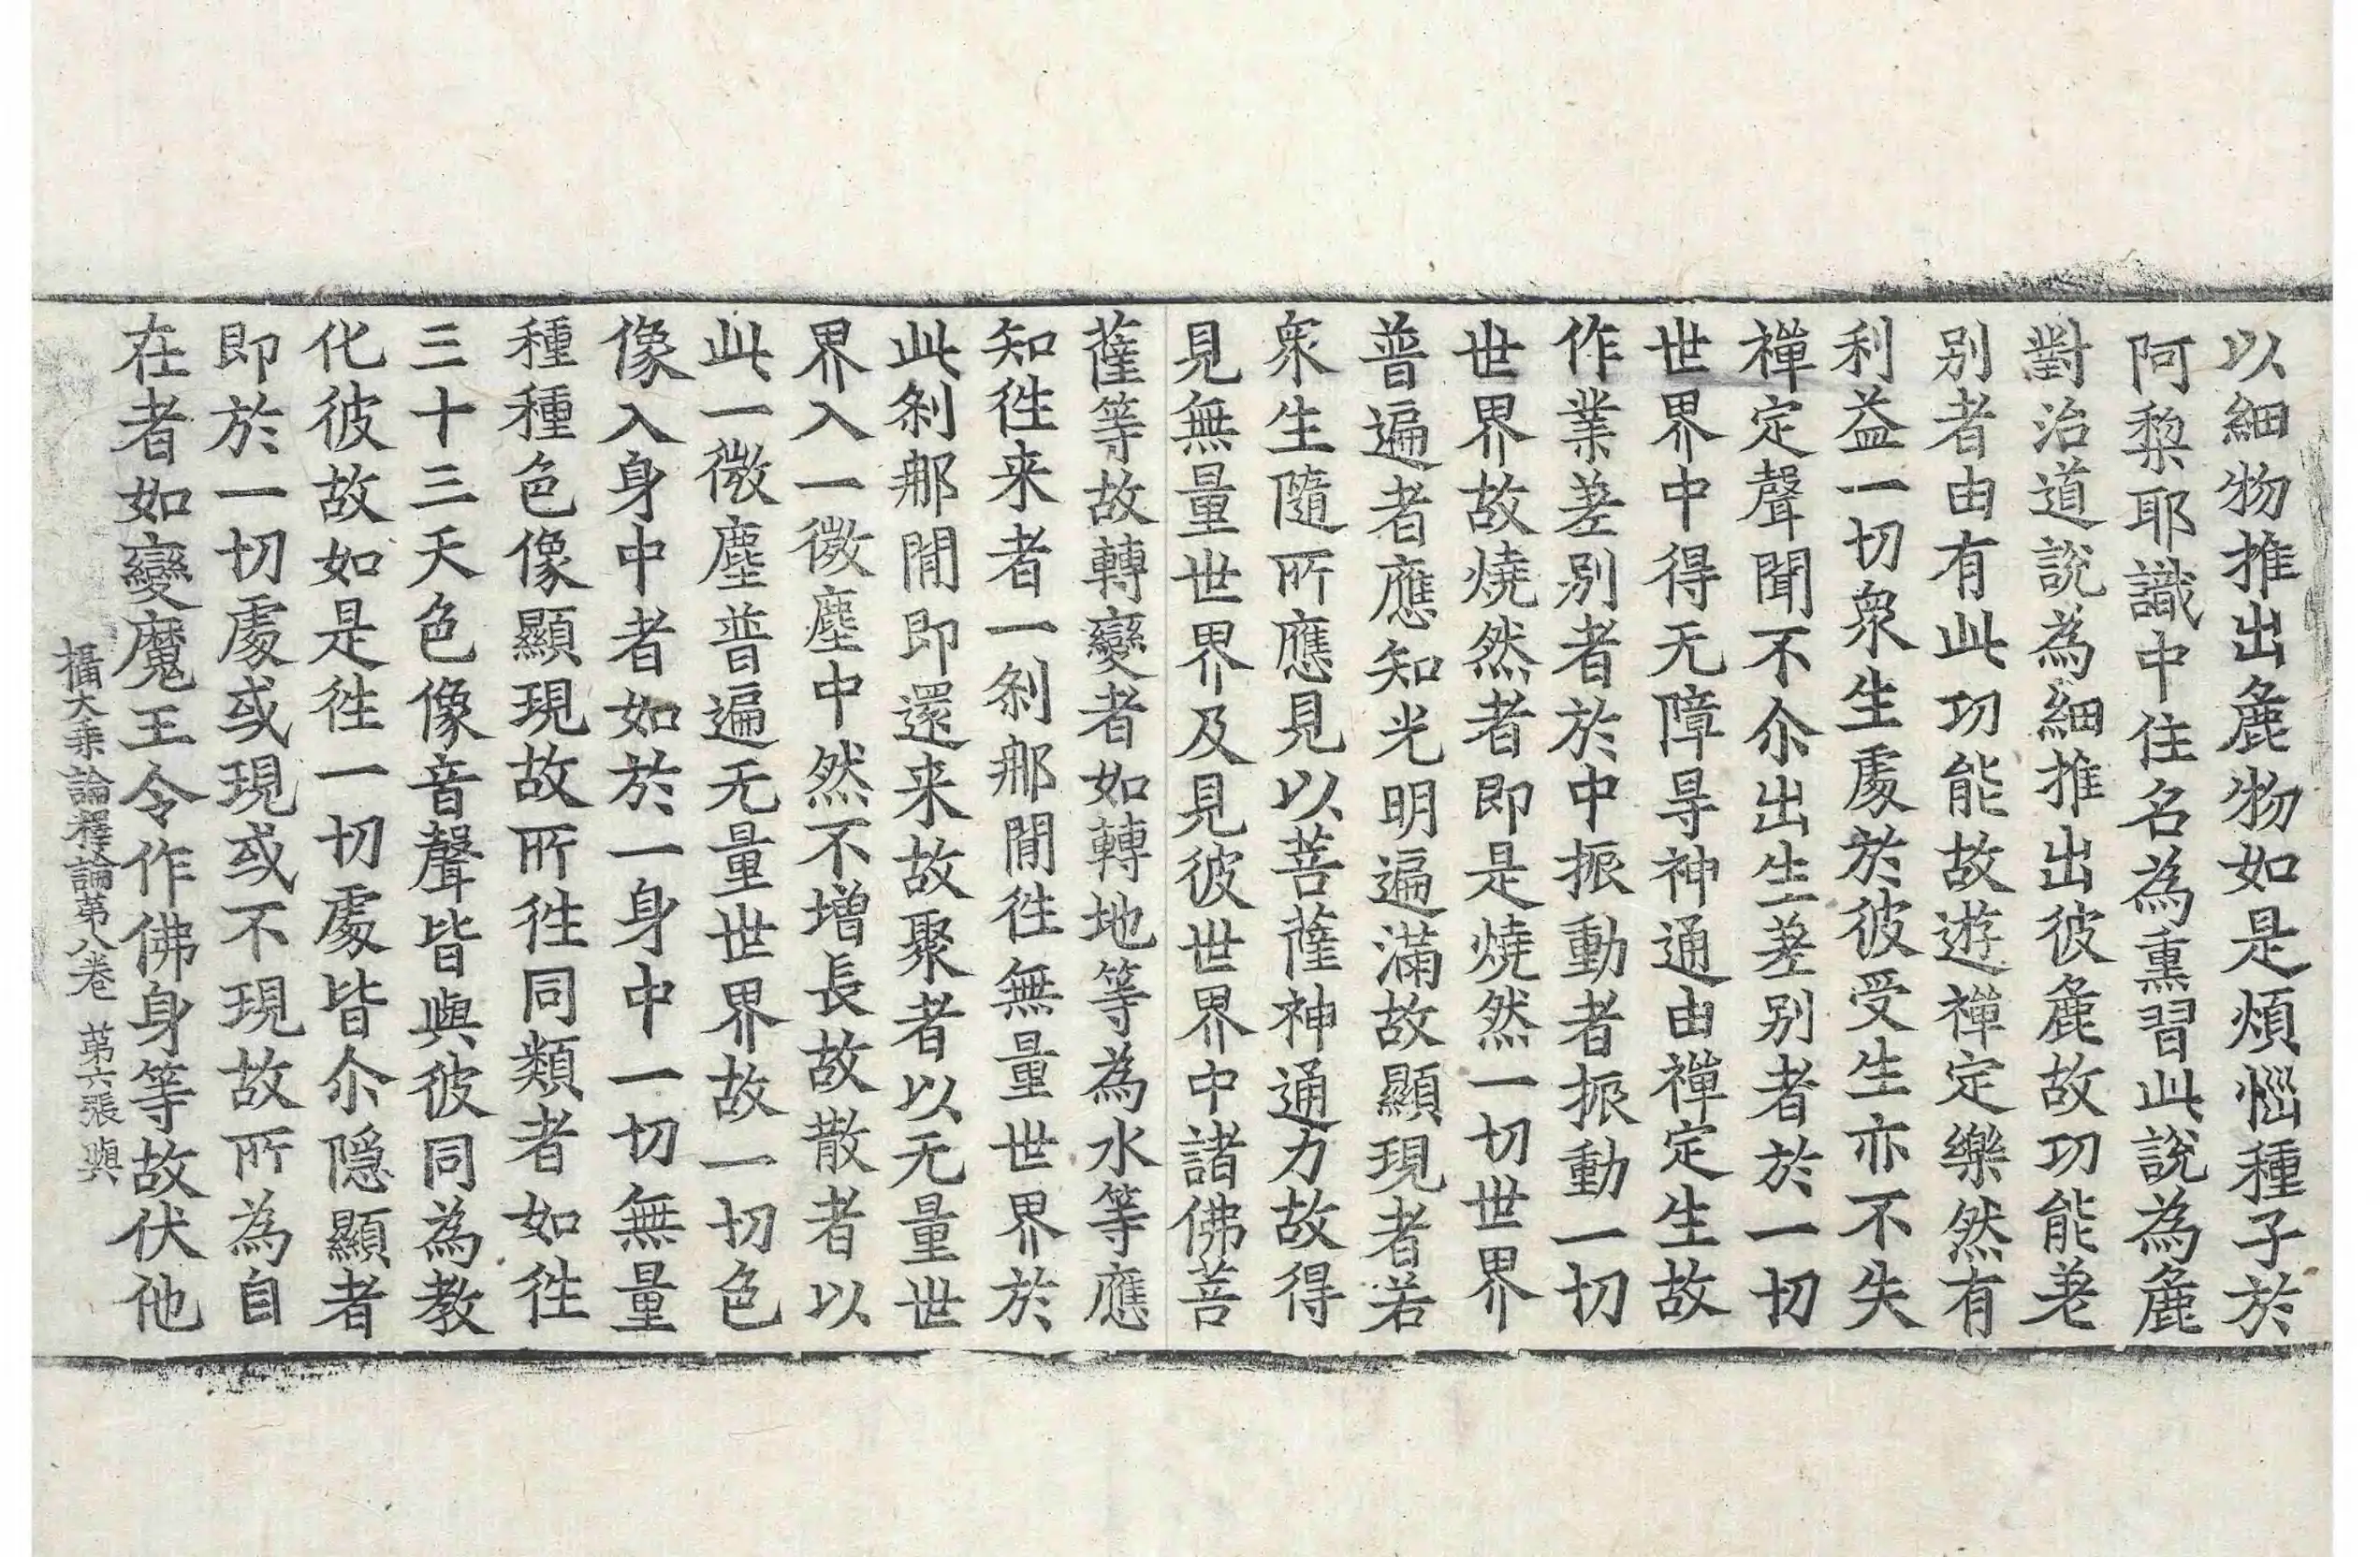 以細物推出麁物如是煩惱種子於
阿棃耶識中住名為熏習此說為麁
對治道說為細推出彼麁故功能差
别者由有此功能故遊禪定樂然有
利益一切衆生處於彼受生亦不失
禪定聲聞不尒出生差别者於一切
世界中得无障㝵神通由禪定生故
作業差别者於中振動者振動一切
世界故燒然者即是燒然一切世界
普遍者應知光明遍滿故顯現者若
衆生隨所應見以菩薩神通力故得
見無量世界及見彼世界中諸佛菩
薩等故轉變者如轉地等為水等應
知徃来者一刹那間徃無量世界於
此刹那間即還来故聚者以无量世
界入一微塵中然不增長故散者以
此一微塵普遍无量世界故一切色
像入身中者如於一身中一切無量
種種色像顯現故所徃同類者如徃
三十三天色像音聲皆與彼同為教
化彼故如是徃一切處皆尒隱顯者
即於一切處或現或不現故所為自
在者如變魔王令作佛身等故伏他
攝大乘論釋論苐八卷 苐六張 與